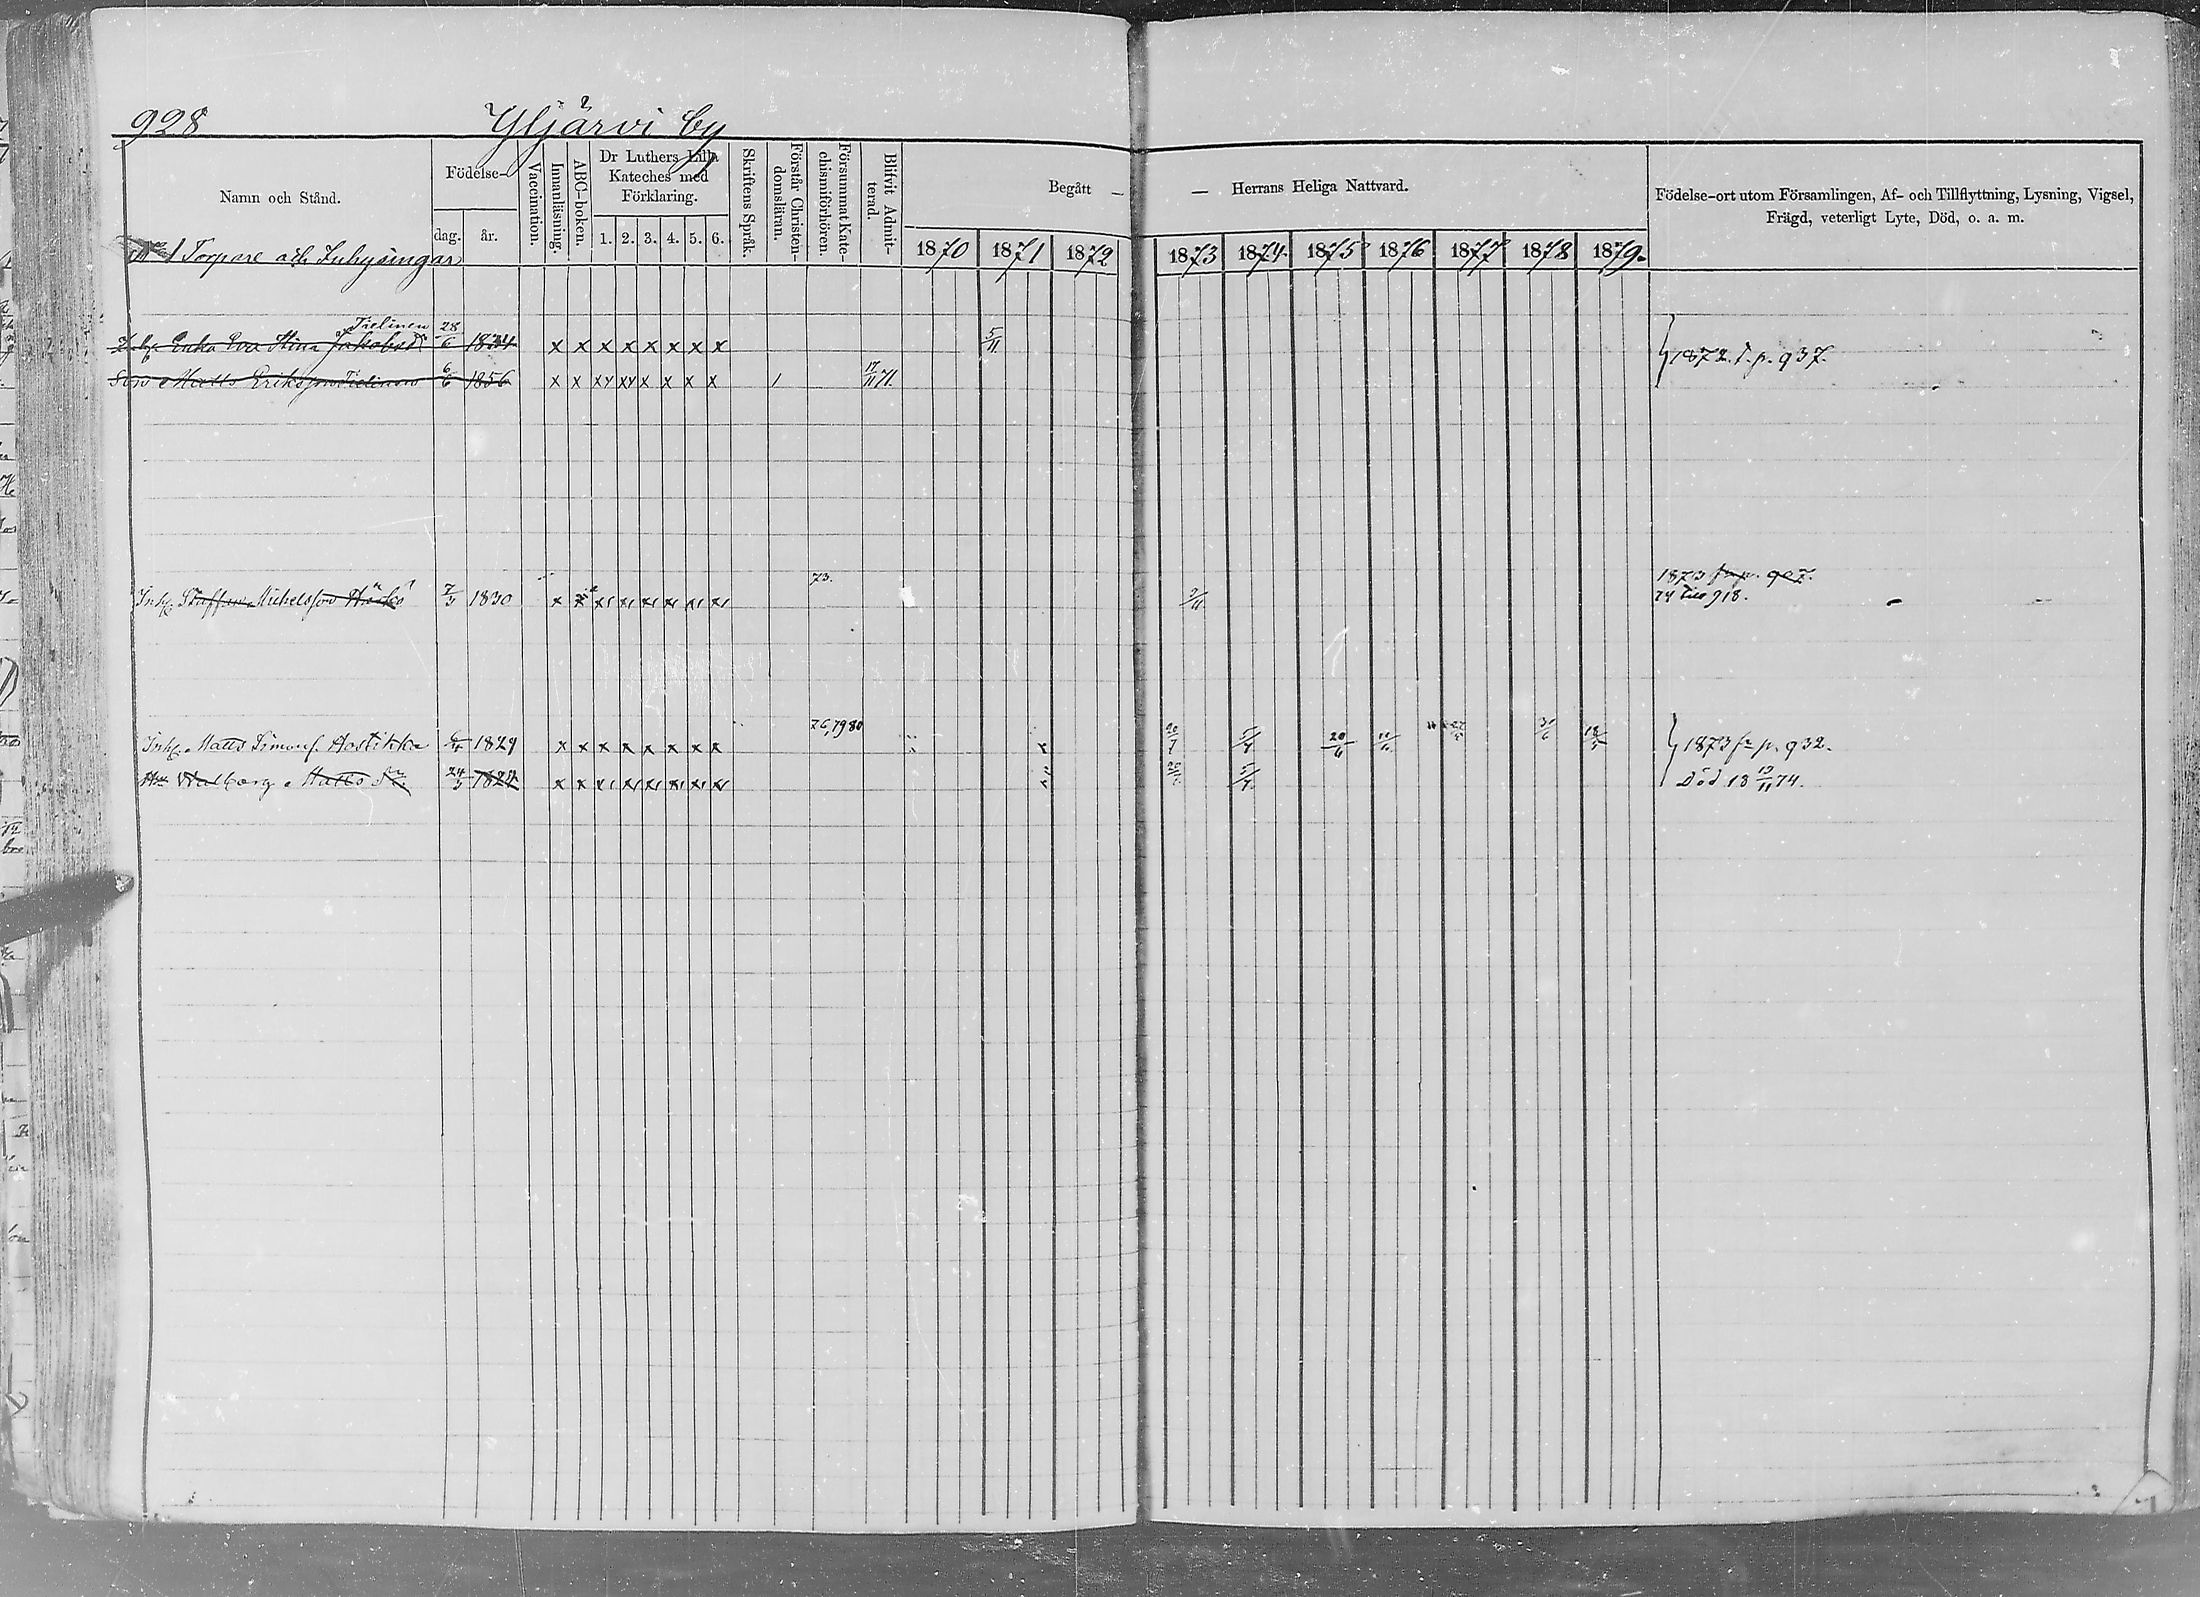 928
Yljärvi by
Namn och Stånd.
Födelse-
dag. år.
Vaccination.
Innanläsning.
ABC-boken.
Dr Luthers Lilla Kateches med Förklaring.
1. 2. 3. 4. 5. 6.
Skriftens Språk.
Förstår Christendomsläran.
Försummat Katechismiförhören.
Blifvit Admitterad.
Begått — — Herrans Heliga Nattvard.
1870 1871 1872 1873 1874 1875 1876 1877 1878 1879
Födelse-ort utom Församlingen, Af- och Tillflyttning, Lysning, Vigsel,
Frägd, veterligt Lyte, Död, o. a. m.
1 Torpare och Inhysingar
Tielinen
Enka Eva Stina Jakobsd 28/6 1834 x x x x x x x x 5/11
Son Matts Eriksson Tielinen 6/6 1856 x x xy xy x x x x 1 17/11 71. 1872 T. p. 937.
73. 1873 fr p. 907.
Inh. Staffan Michelsson 7/3 1830 74 till 918.
76, 79 80
Inh. Matts Simons. Hostikka 1829 x x x x x x x x 5/4 20/6 1873 fr p. 932.
Hu Walborg Matts dr 24/3 1822 5/4 Död 18 13/11 74.